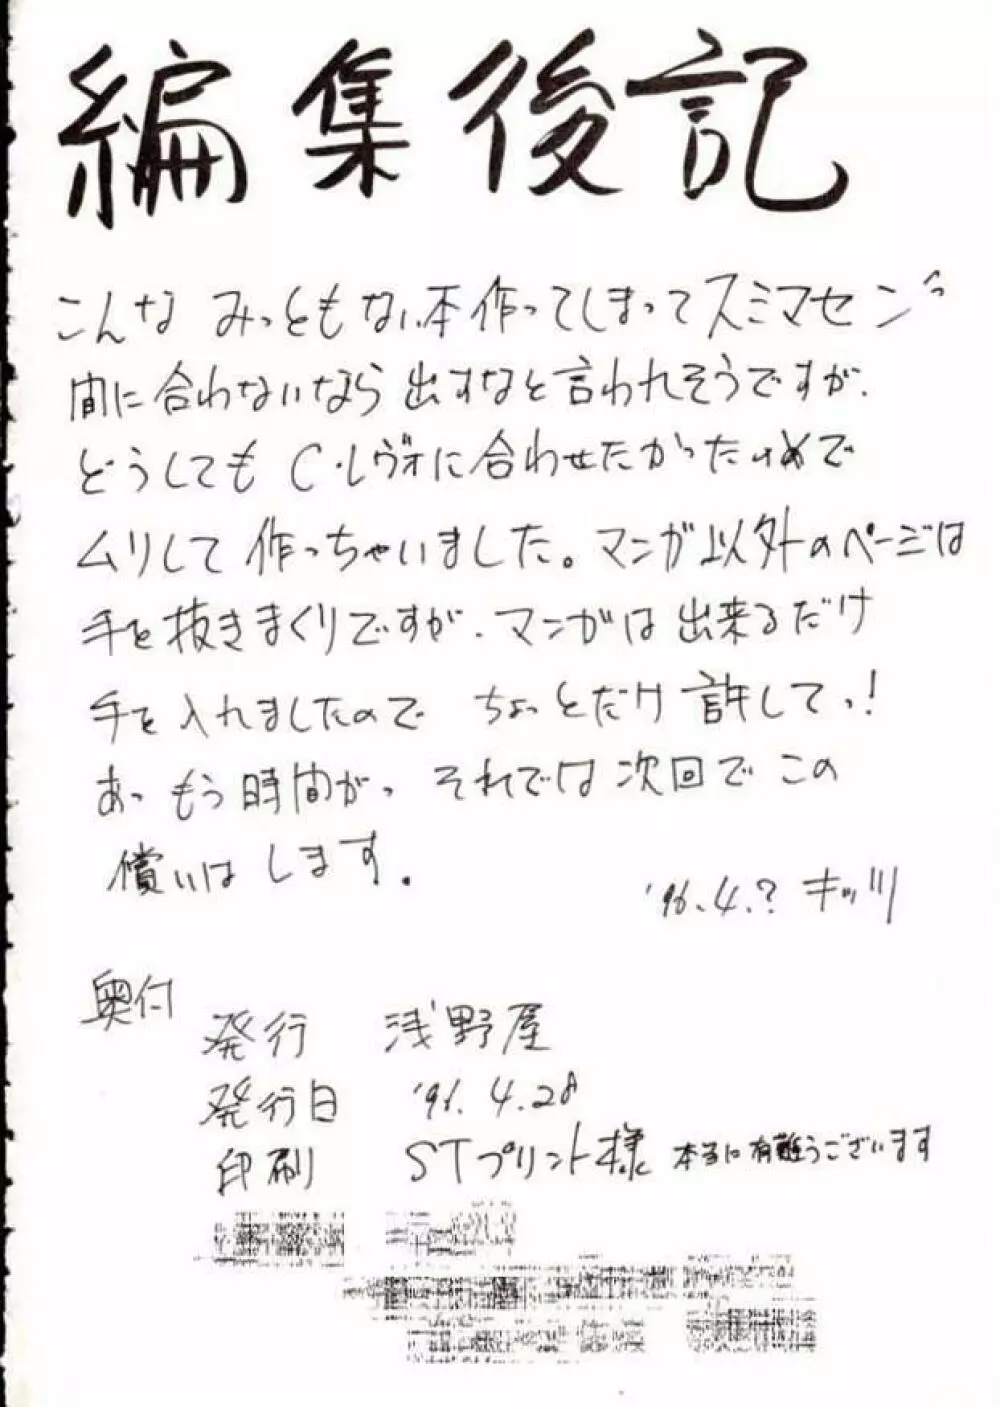 編集後記
こんな みっともない本作ってしまってスミマセンっ
間に合わないなら 出すなと言われそうですが、
どうしても C・レヴォに合わせたかったためで
ムリして 作っちゃいました。マンガ以外のページは
手を抜きまくりですが、マンガは出来るだけ
手を入れましたので ちょっとだけ許してっ!
あっ もう時間がっ それでは次回でこの
償いはします。
'96.4.? キッツ
奥付
発行 浅野屋
発行日 '96.4.28
印刷 STプリント様 本当に有難うございます